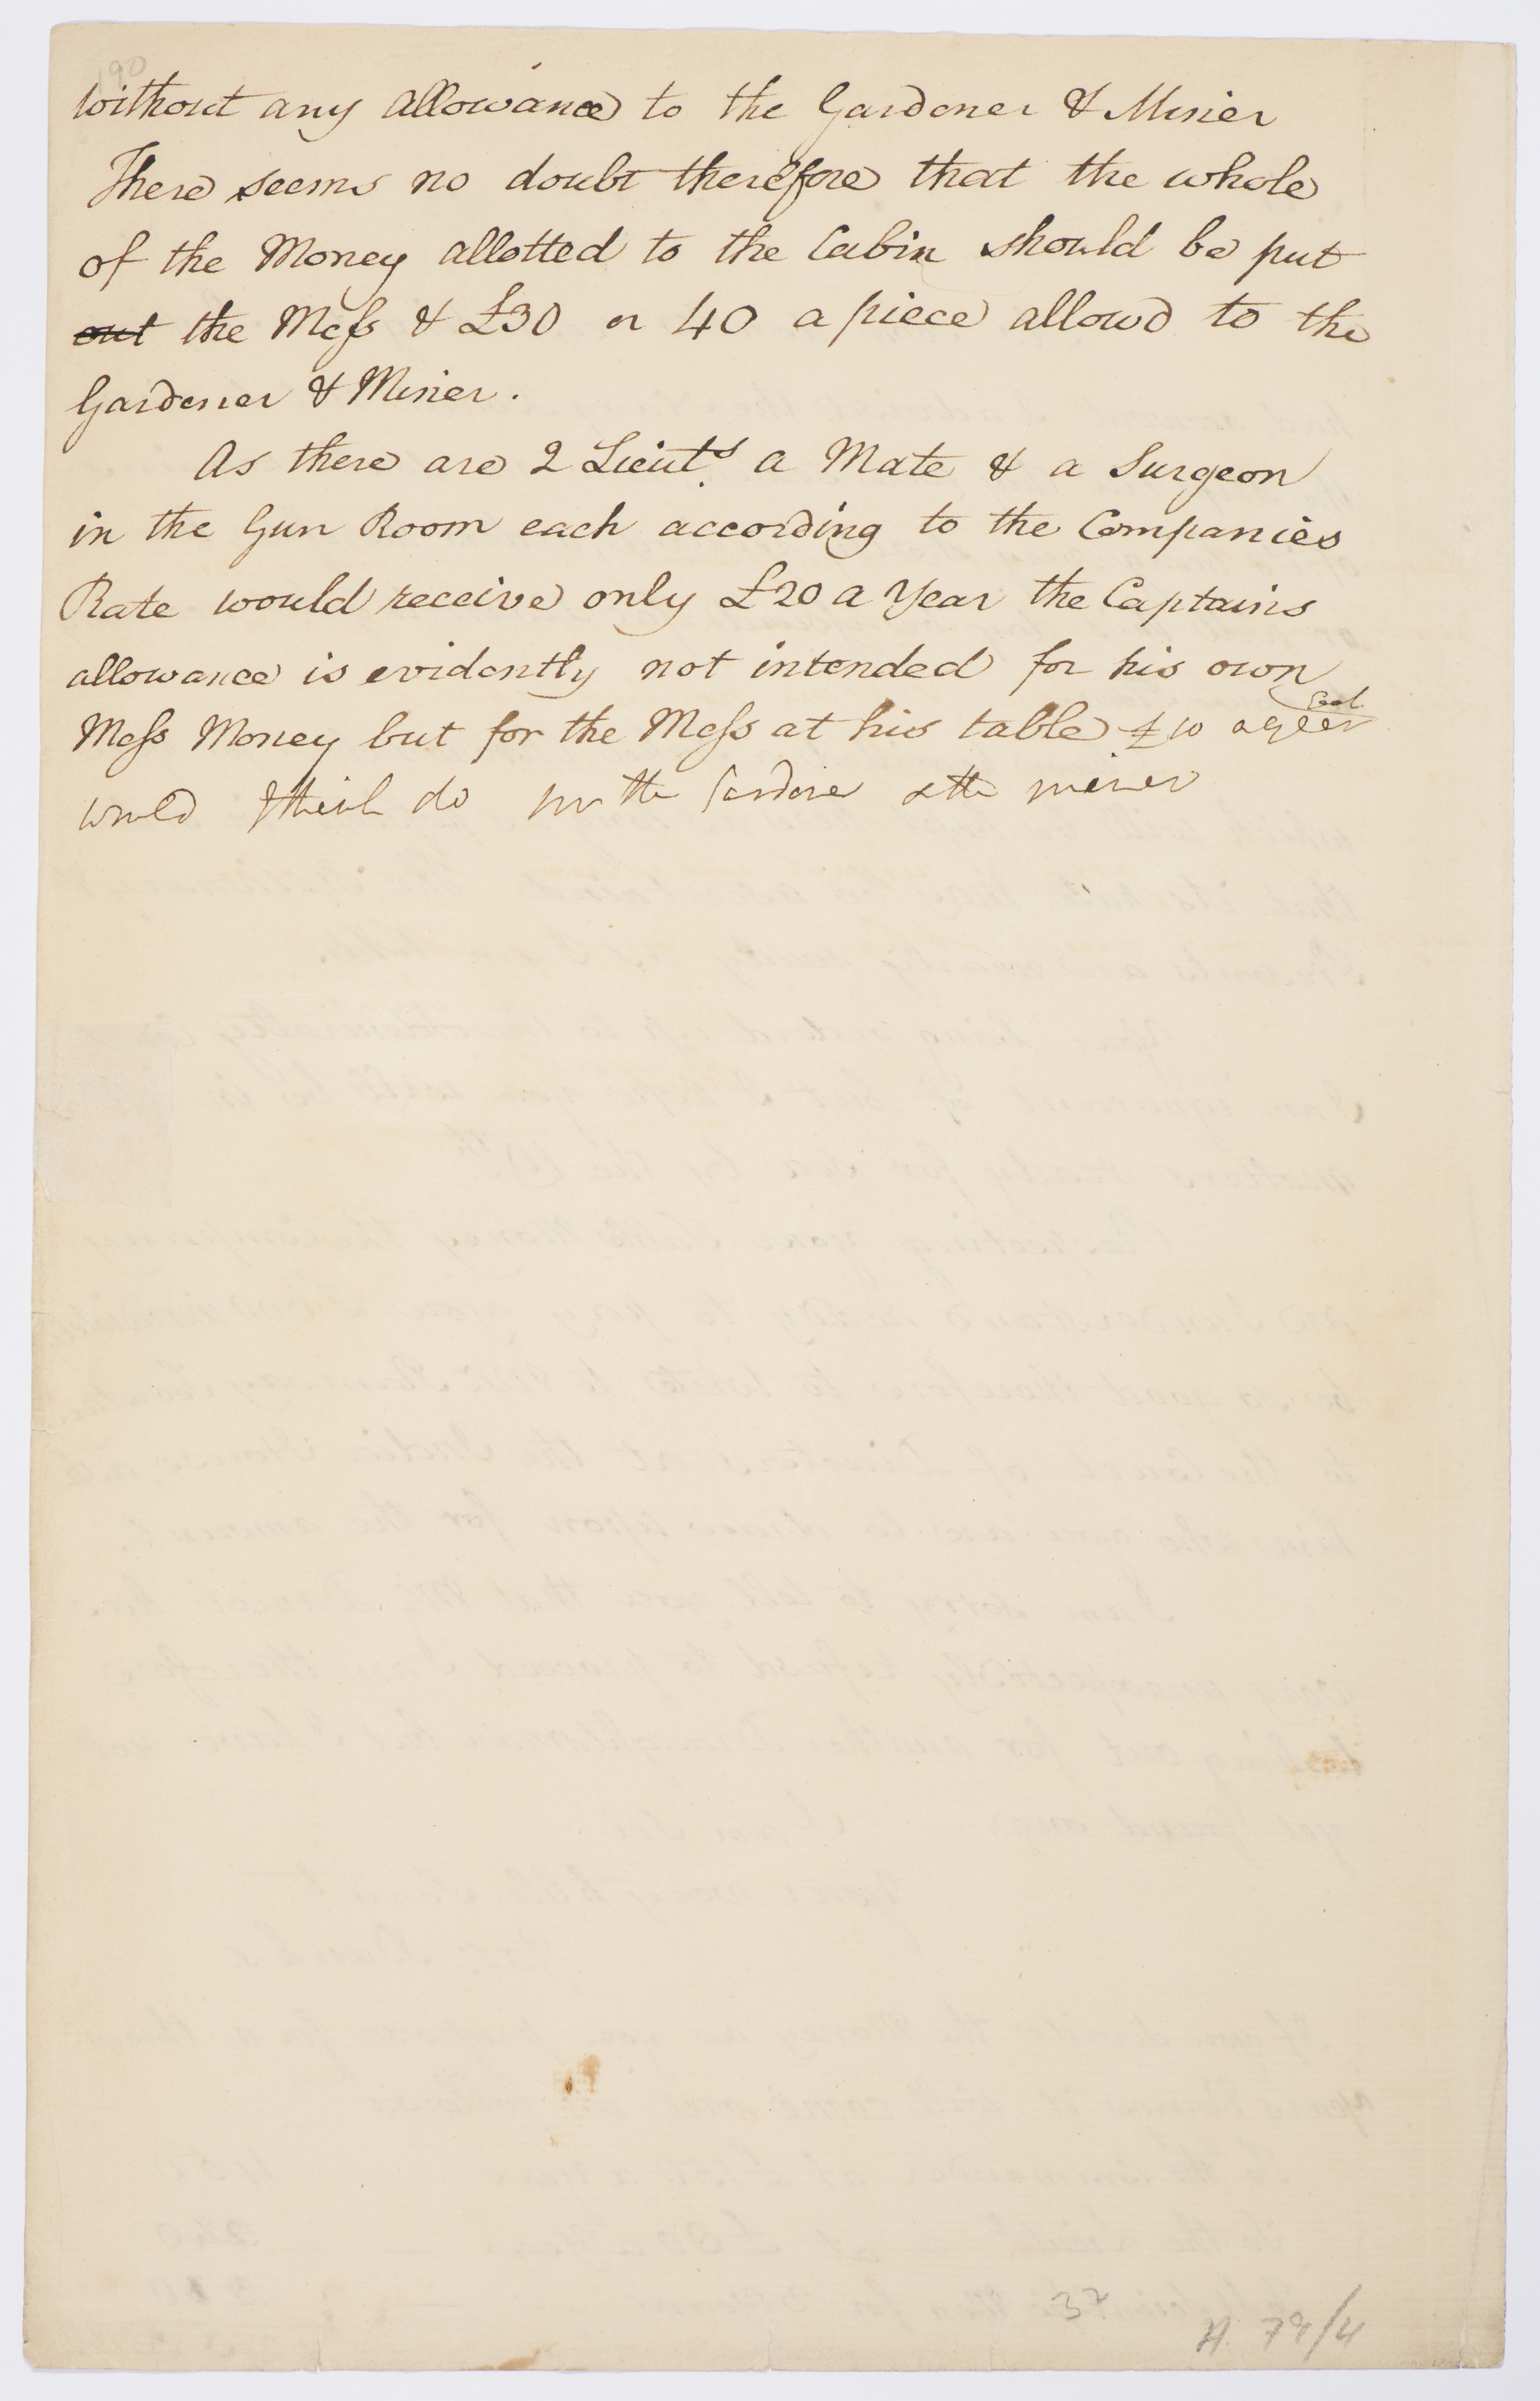 190
without any allowance to the Gardener & Miner
There seems no doubt therefore that the whole
of the Money allotted to the Cabin should be put
out the Mess & £30 or 40 a piece allowd to the
Gardener & Miner.
As there are 2 Lieuts. a Mate & a Surgeon
in the Gun Room each according to the Companies
Rate would receive only £20 a Year the Captains
allowance is evidently not intended for his own
Mess Money but for the Mess at his table £10 a year
would I think do for the Gardener & the miner
32
A 79/4